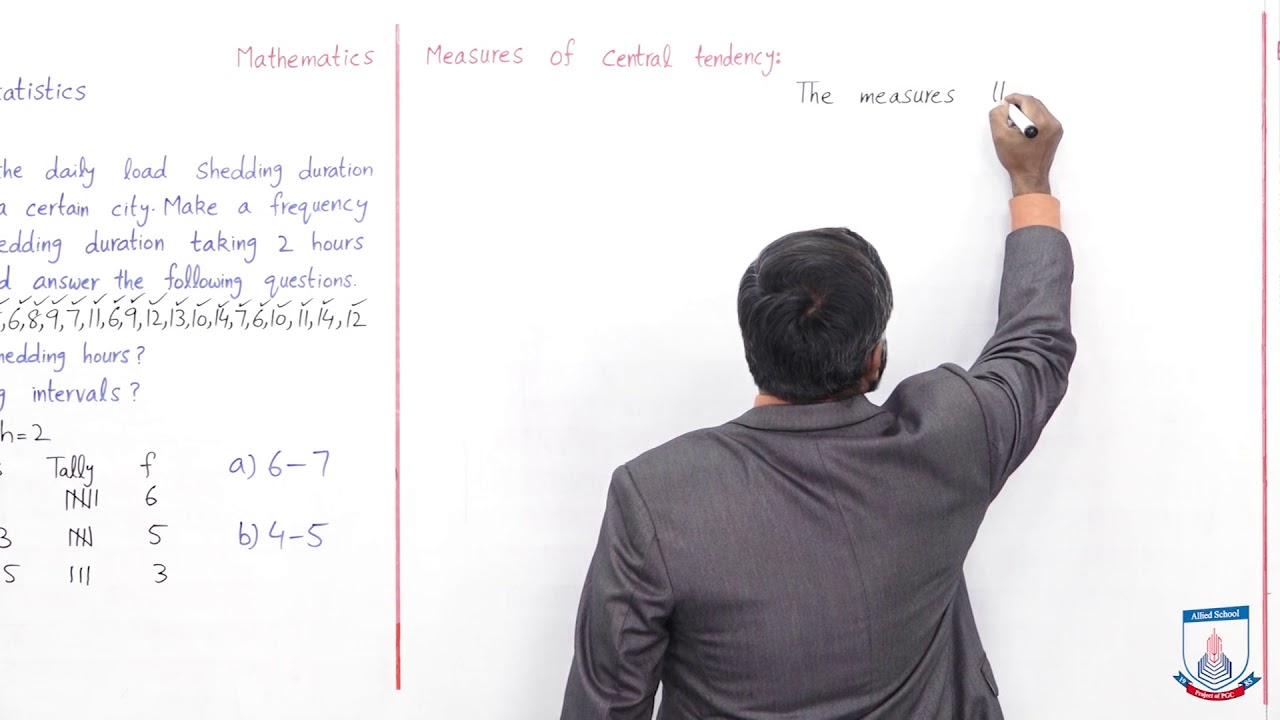 Mathematics
atistics
the daily load shedding duration
a certain city. Make a frequency
edding duration taking 2 hours
d answer the following questions.
,6,8,9,7,11,6,9,12,13,10,14,7,6,10,11,14,12
hedding hours?
g intervals?
h=2
s Tally f
6
3 5
5 3
a) 6-7
b) 4-5
Measures of central tendency:
The measures
Allied School
19 85
Project of PGC